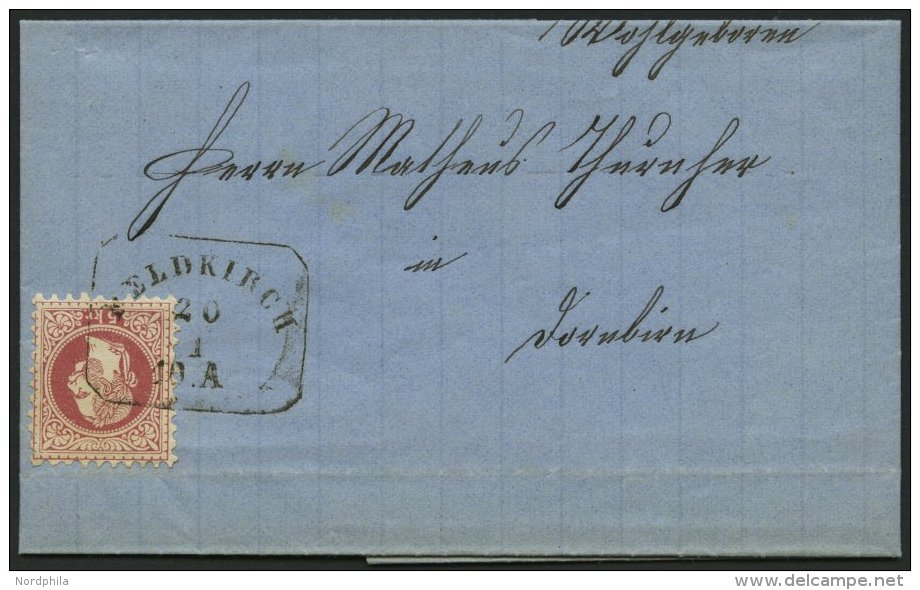 Wohlgeboren
Herrn Matheus Thurnher
in
Dornbirn
FELDKIRCH
20
1
10.A
5
Nordphila
www.delcampe.net